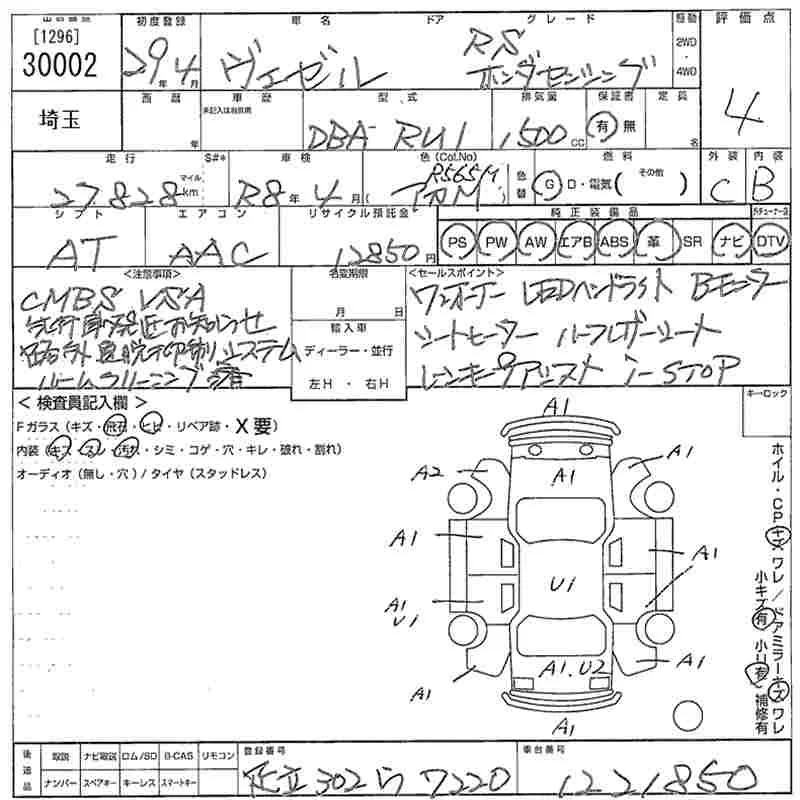 [1296]
30002
埼玉
初度登録
29年4月
車名 ドア グレード
ヴェゼル
RS
ホンダセンシング
駆動
2WD
・
4WD
評価点
4
西暦
年
車歴
未記入は自家用
型式
DBA-RU1
排気量
1500cc
保証書
有 無
定員
名
走行
27828
マイル
km
S#*
車検
R8年4月
色(Col.No)
R565M
色替
燃料
G・D・電気( その他 )
外装
C
内装
B
シフト
AT
エアコン
AAC
リサイクル預託金
12850円
純正装備品
PS PW AW エアB ABS 革 SR ナビ DTV
<注意事項>
CMBS VSA
先行車発進お知らせ
路外逸脱抑制システム
ルームクリーニング済
名変期限
月 日
輸入車
ディーラー・並行
左H ・ 右H
<セールスポイント>
ワンオーナー LEDヘッドライト Bモニター
シートヒーター ハーフレザーシート
レーンキープアシスト i-STOP
キーロック
< 検査員記入欄 >
Fガラス(キズ・飛石・ヒビ・リペア跡・X要)
内装(キズ・スレ・汚れ・シミ・コゲ・穴・キレ・破れ・割れ)
オーディオ(無し・穴)/タイヤ(スタッドレス)
A1
A2
A1
A1
A1
A1
A1
U1
U1
A1
A1.U2
A1
A1
ホイル・CPキズ ワレ/ドアミラーキズ ワレ
小キズ有 小U有 補修有
後送品
取説 ナビ取説 ロム/SD B-CAS リモコン
ナンバー スペアキー キーレス スマートキー
登録番号
足立302ら7220
車台番号
1221850